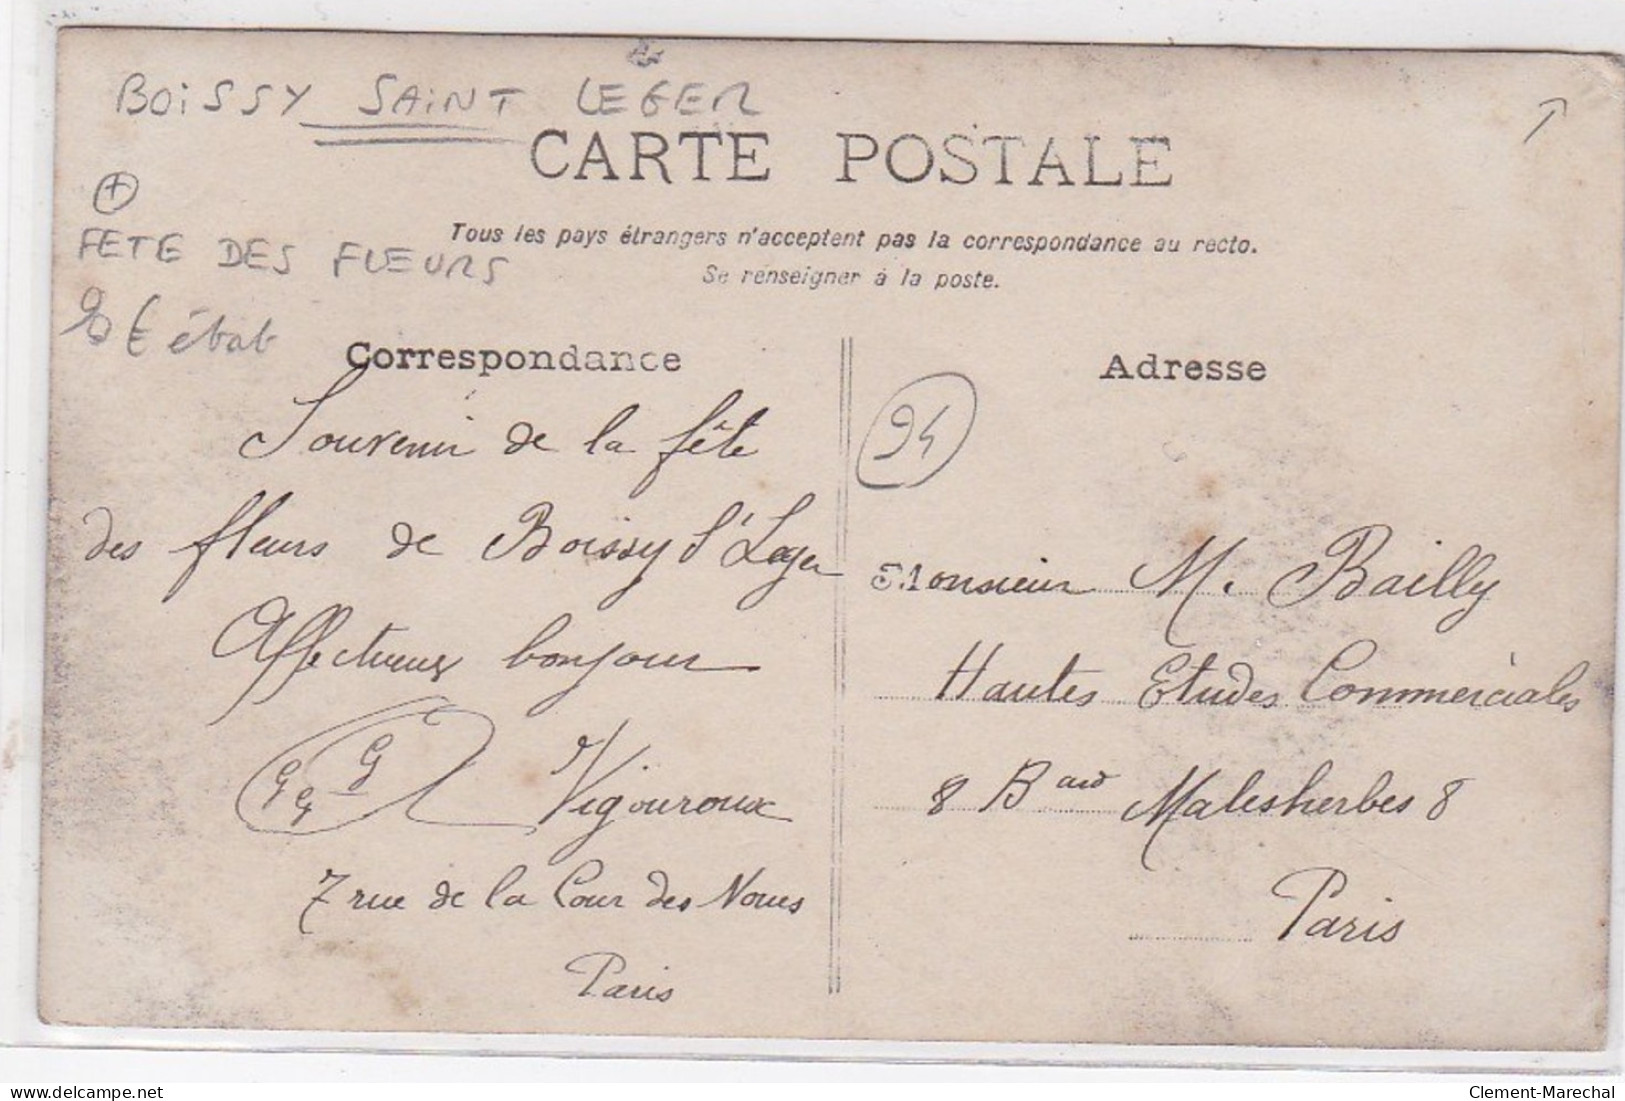 BOISSY SAINT LEGER
CARTE POSTALE
Tous les pays étrangers n'acceptent pas la correspondance au recto.
Se renseigner à la poste.
+
FETE DES FLEURS
état
Correspondance
Souvenir de la fête
des fleurs de Boissy St Leger
Affectueux bonjour
Vigouroux
7 rue de la Cour des Noues
Paris
Adresse
94
Monsieur M. Bailly
Hautes Etudes Commerciales
8 Bard Malesherbes 8
Paris
delcampe.net
Clement-Marechal